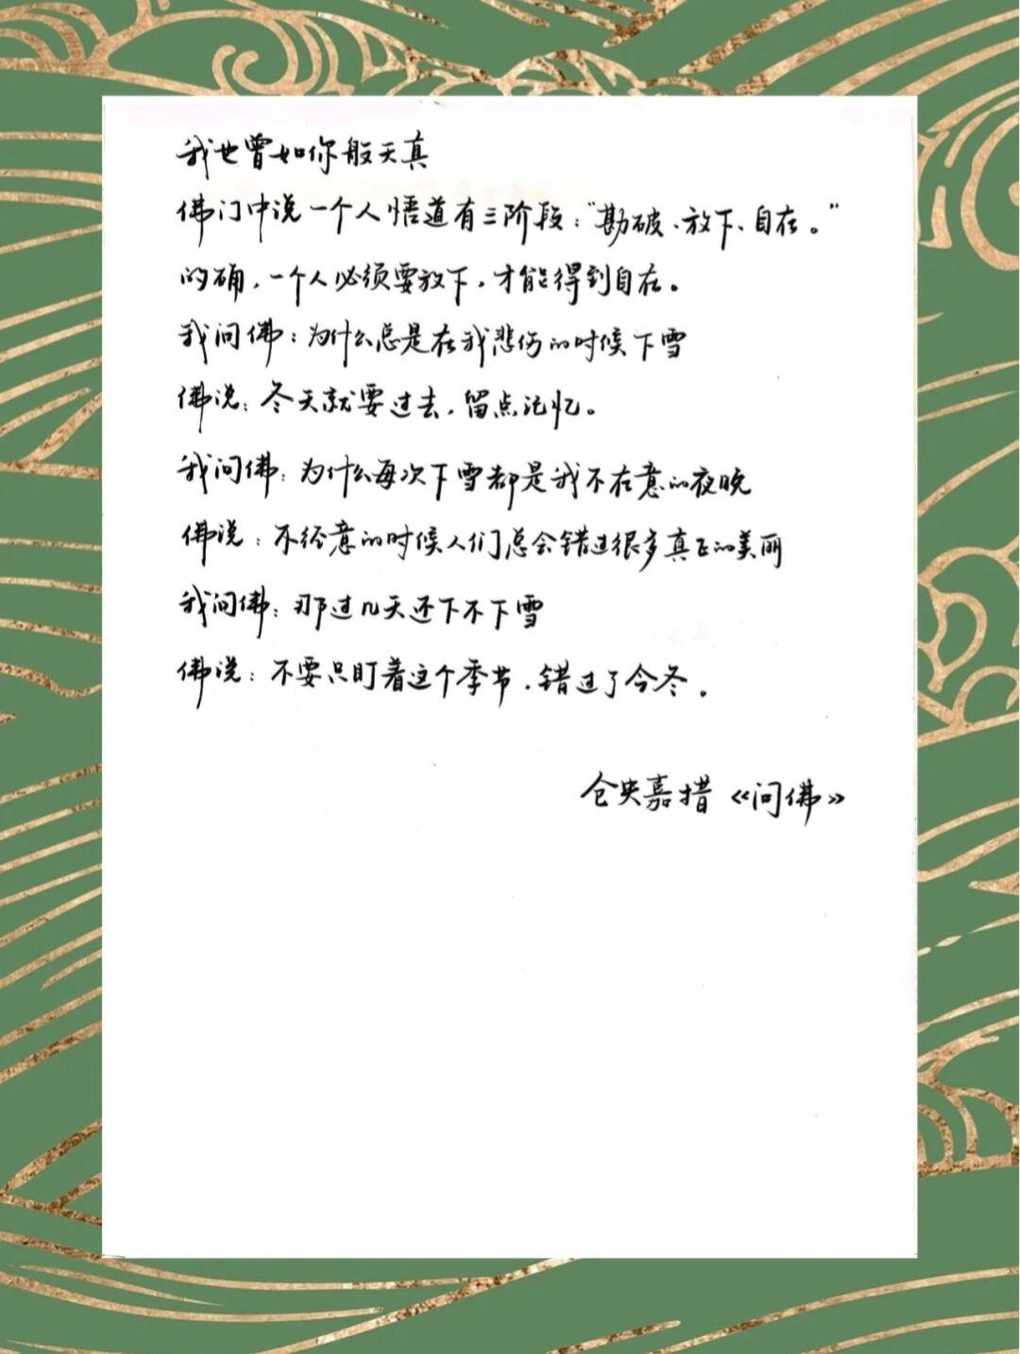 我也曾如你般天真
佛门中说一个人悟道有三阶段：“勘破、放下、自在。”
的确，一个人必须要放下，才能得到自在。
我问佛：为什么总是在我悲伤的时候下雪
佛说：冬天就要过去，留点记忆。
我问佛：为什么每次下雪都是我不在意的夜晚
佛说：不经意的时候人们总会错过很多真正的美丽
我问佛：那过几天还下不下雪
佛说：不要只盯着这个季节，错过了今冬。
仓央嘉措《问佛》